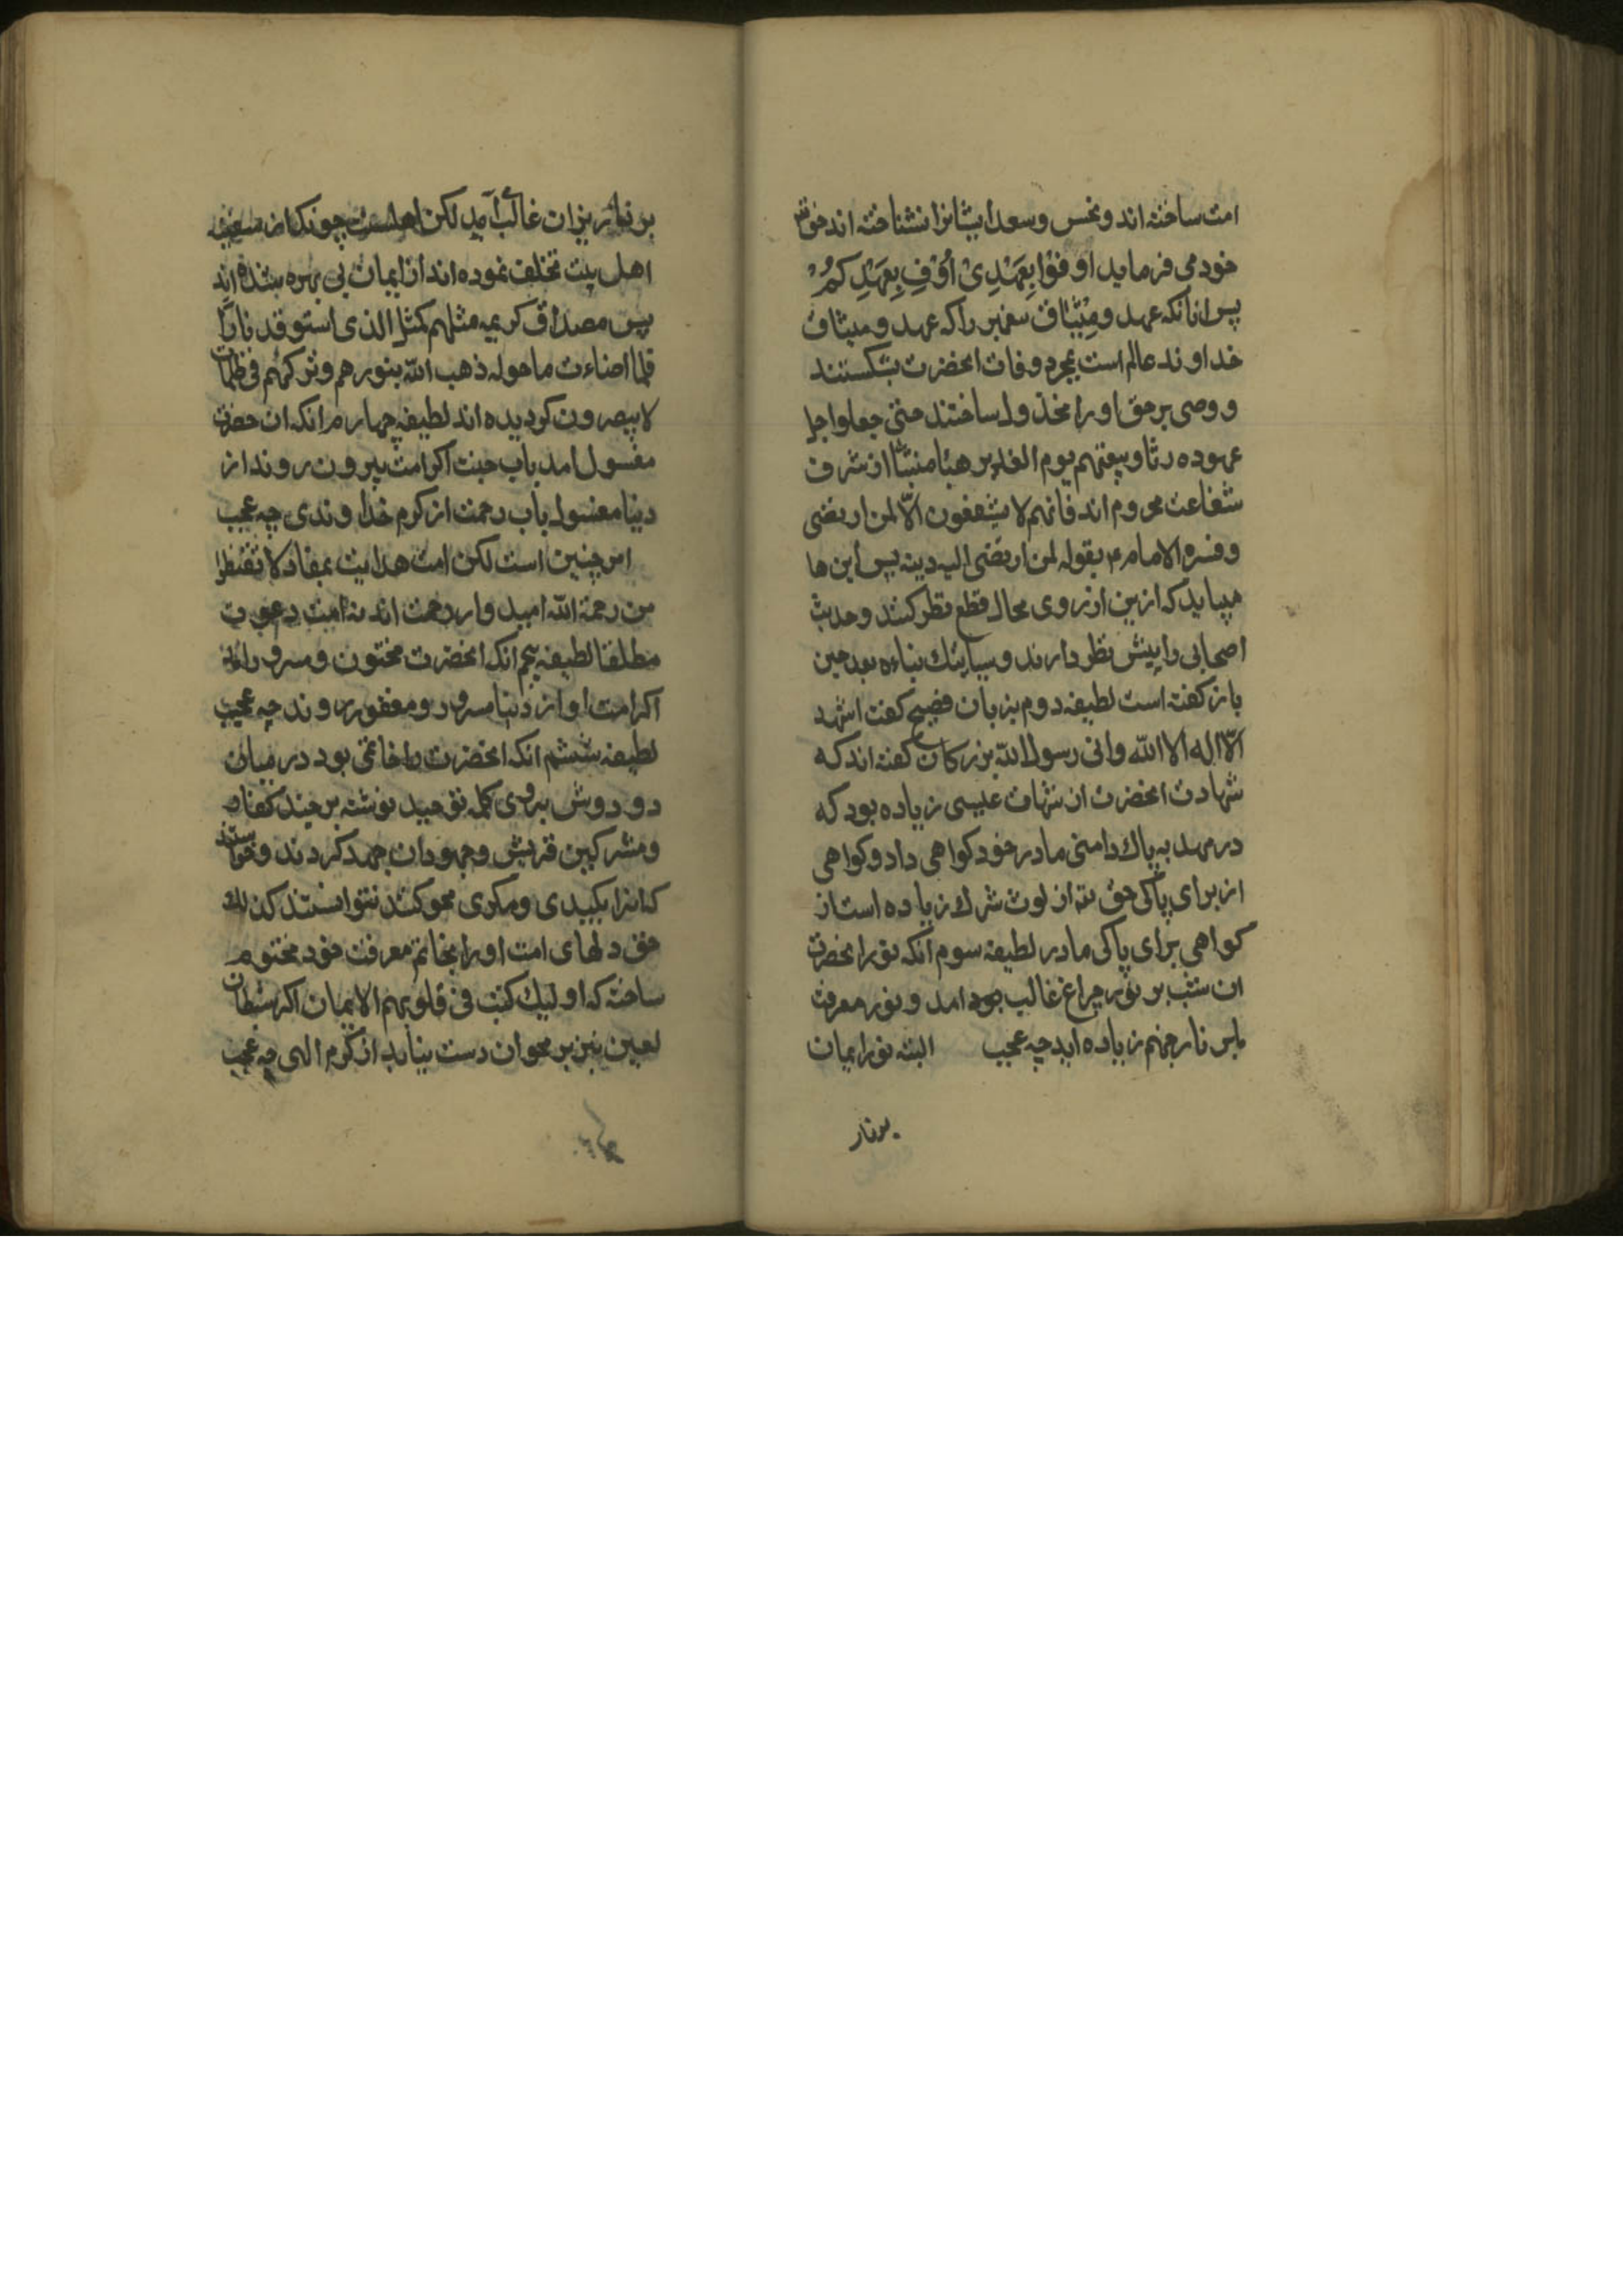 امت ساخته اند و نحس و سعد ایشانرا نشناخته اند حق تع
خود می فرماید اَوفُوْا بِعَهْدِیْ اُوْفِ بِعَهْدِکُمْ
پس انانکه عهد و میثاق پیغمبر را که عهد و میثاق
خداوند عالم است بمجرد وفات انحضرت بشکستند
و وصی بر حق او را مخذول ساختند حتی جعلوا حبل
عهوده رثا و بیعتهم یوم الغدیر هباء منبثا از شرف
شفاعت محروم اند فانهم لا یشفعون الّا لمن ارتضی
و فسره الامام ع بقوله لمن ارتضی الیه دینه پس این ها
میباید که ازین ارزوی محال قطع نظر کنند و حدیث
اصحابی را پیش نظر دارند و بعد حین
باز گفته است لطیفه دوم بزبان فصیح گفت اشهد
الّا اله الا الله و انی رسول الله بزرگان گفته اند که
شهادت انحضرت از شهادت عیسی زیاده بود که
در مهد به پاک دامنی مادر خود گواهی داد و گواهی
از برای پاکی حق تع از لوث شرک زیاده است از
گواهی برای پاکی مادر لطیفه سوم آنکه نور انحضرت
ان شب بر نور چراغ غالب بود امد و نور معرفت
بر نار جهنم زیاده اید چه عجب البته نور ایمان
بر نار
بر نار نیران غالب آید لکن چونکه از سفینه
اهل بیت تخلف نموده اند از ایمان بی بهره شده اند
پس مصداق کریمه مثلهم کمثل الذی استوقد نارًا
فلما اضاءت ما حوله ذهب الله بنورهم و ترکهم فی ظلمات
لا یبصرون گردیده اند لطیفه چهارم انکه ان حضرت
مغسول امد باب جنت اگر امت بیرون روند از
دنیا مغسول باب رحمت از کرم خداوندی چه عجب
امر چنین است لکن امت هدایت بمفاد لا تقنطوا
من رحمة الله امیدوار رحمت اند نه امت دعوت
مطلقا لطیفه پنجم انکه انحضرت مختون و مسرور امد
اگر امت او از دنیا مسرور و مغفور روند چه عجب
لطیفه ششم انکه انحضرت را خاتمی بود در میان
دو دوش بروی کلمه توحید نوشته هر چند کفار
و مشرکین قریش و جهودان جهد کردند و خواستند
که انرا بکیدی و مکری محو کنند نتوانستند کذلک
حق دلهای امت او را بخاتم معرفت خود مختوم
ساخته که اولیک کتب فی قلوبهم الایمان اگر شیطان
لعین نیز بر محو ان دست نیابد از کرم الهی چه عجب